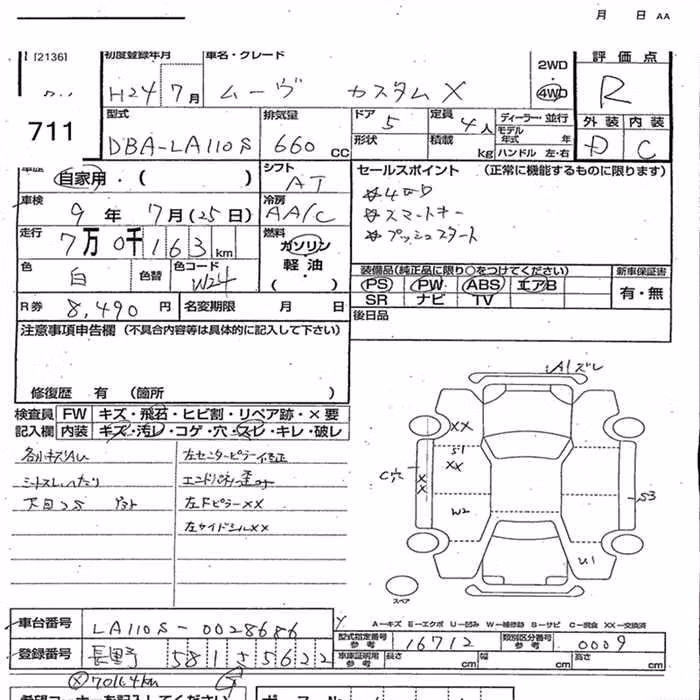 月 日 AA
[2136]
初度登録年月 車名・グレード 評価点
H24 7月 ムーヴ カスタムX
2WD
4WD
R
711
型式 排気量 ドア 定員 ディーラー・並行
DBA-LA110S 660cc 5 4人
形状 積載 kg
モデル年式 年
ハンドル 左・右
外装 内装
D C
車歴 シフト セールスポイント (正常に機能するものに限ります)
自家用・( ) AT
☆4WD
☆スマートキー
☆プッシュスタート
車検 冷房
9年 7月(25日) AA/C
走行 燃料
7万0千163km ガソリン
軽油
( )
色 色替 色コード
白 W24
装備品(純正品に限り○をつけてください) 新車保証書
PS PW ABS エアB 有・無
SR ナビ TV
R券 8,490円 名変期限 月 日
後日品
注意事項申告欄 (不具合内容等は具体的に記入して下さい)
修復歴 有 (箇所 )
検査員 FW キズ・飛石・ヒビ割・リペア跡・×要
記入欄 内装 キズ・汚レ・コゲ・穴・スレ・キレ・破レ
各小キズAU 左センターピラー修正
シートスレ・へたり
左Fピラー××
左サイドシル××
A1ズレ
××
S1
××
C穴
××
W2
S3
U1
スペア
A-キズ E-エクボ U-凹み W-補修跡 S-サビ C-腐食 ××-交換済
車台番号 LA110S-0028686
登録番号 長野 581 さ 5622
型式指定番号 参考 16712 類別区分番号 参考 0009
車庫証明用 参考 長さ cm 幅 cm 高さ cm
70164km